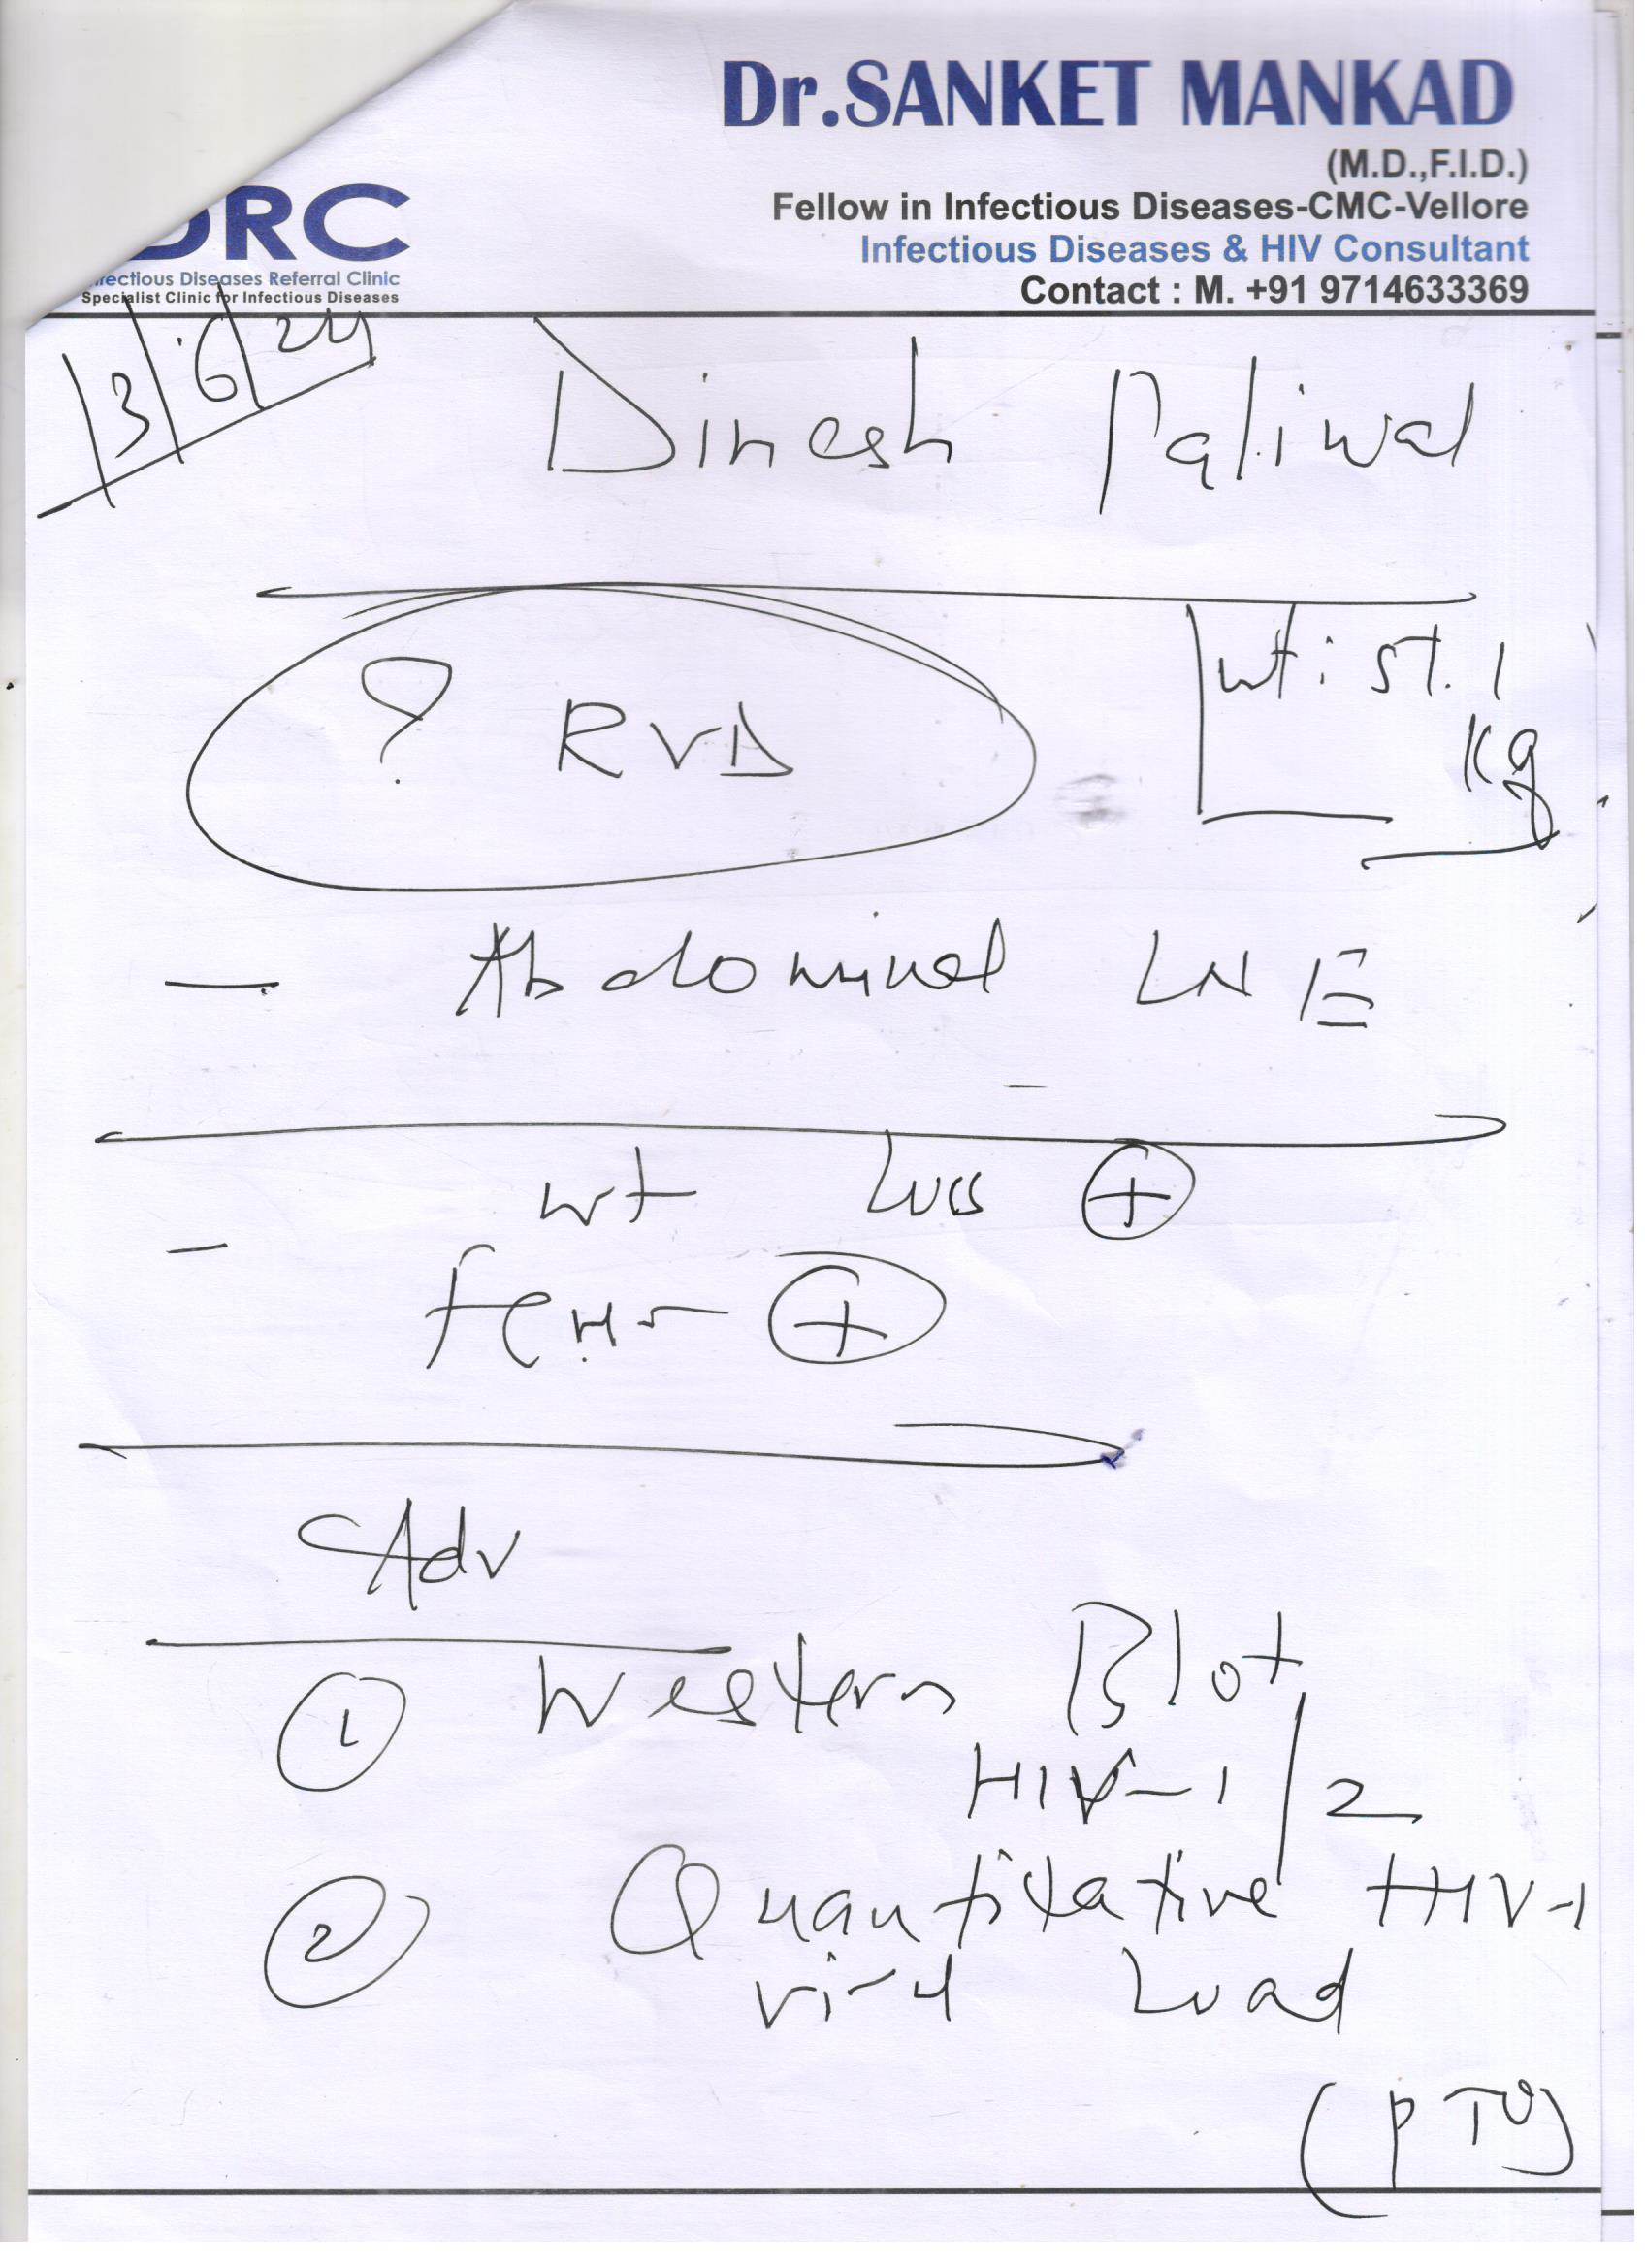 Dr.SANKET MANKAD
(M.D.,F.I.D.)
Fellow in Infectious Diseases-CMC-Vellore
Infectious Diseases & HIV Consultant
Contact : M. +91 9714633369
DRC
fectious Diseases Referral Clinic
Specialist Clinic for Infectious Diseases
13/6/24
Dinesh Paliwal
? RVD
wt: 57.1
kg
- Abdominal LNE
wt loss +
- fever +
Adv
1 Western Blot
HIV-1/2
2 Quantitative HIV-1
viral Load
(PTO)